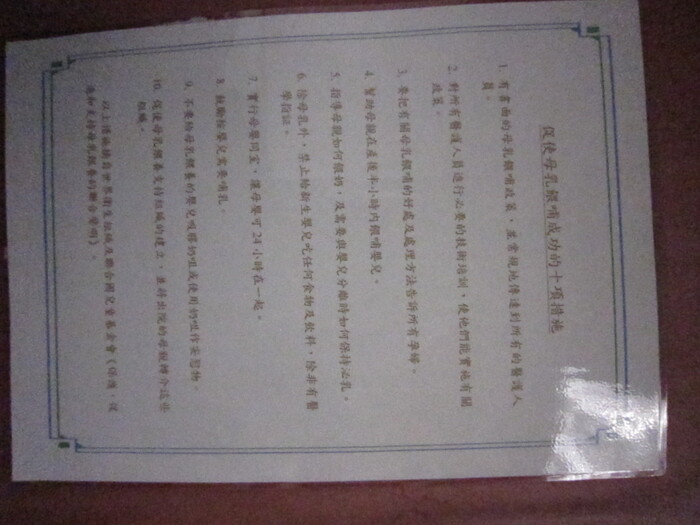 促使母乳餵哺成功的十項措施
1. 有書面的母乳餵哺政策，並常規地傳達到所有的醫護人
員。
2. 對所有醫護人員進行必要的技術培訓，使他們能實施有關
政策。
3. 要把有關母乳餵哺的好處及處理方法告訴所有孕婦。
4. 幫助母親在產後半小時內餵哺嬰兒。
5. 指導母親如何餵奶，及需要與嬰兒分離時如何保持泌乳。
6. 除母乳外，禁止給新生嬰兒吃任何食物及飲料，除非有醫
學指証。
7. 實行母嬰同室，讓母嬰可24小時在一起。
8. 鼓勵按嬰兒需要哺乳。
9. 不要給母乳餵養的嬰兒吸膠奶咀或使用奶咀作安慰物。
10. 促使母乳餵養支持組織的建立，並將出院的母親轉介這些
組織。
以上措施摘自世界衛生組織及聯合國兒童基金會《保護、促
進和支持母乳餵養的聯合聲明》。